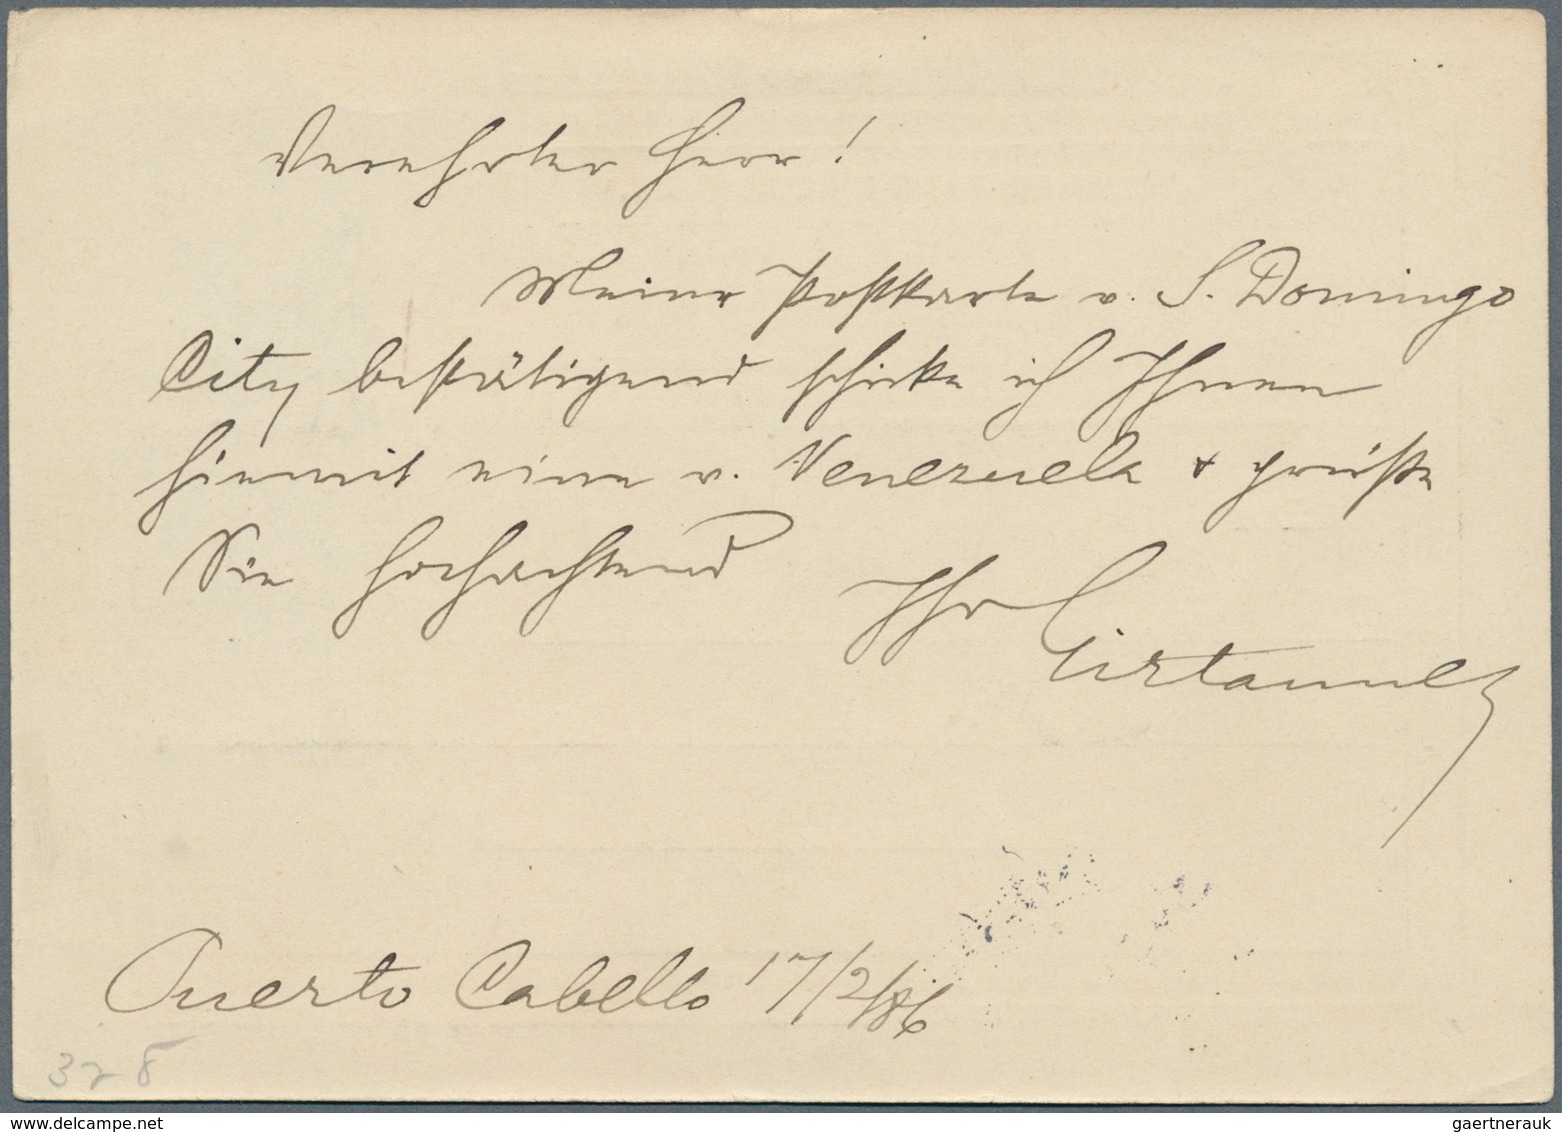 Verehrter Herr!
Meine Postkarte v. S. Domingo
City bestätigend schicke ich Ihnen
hiermit eine v. Venezuela + grüße
Sie hochachtend
Ihr Girtanner
Puerto Cabello 17/2/86
gaertnerauk@delcampe.net